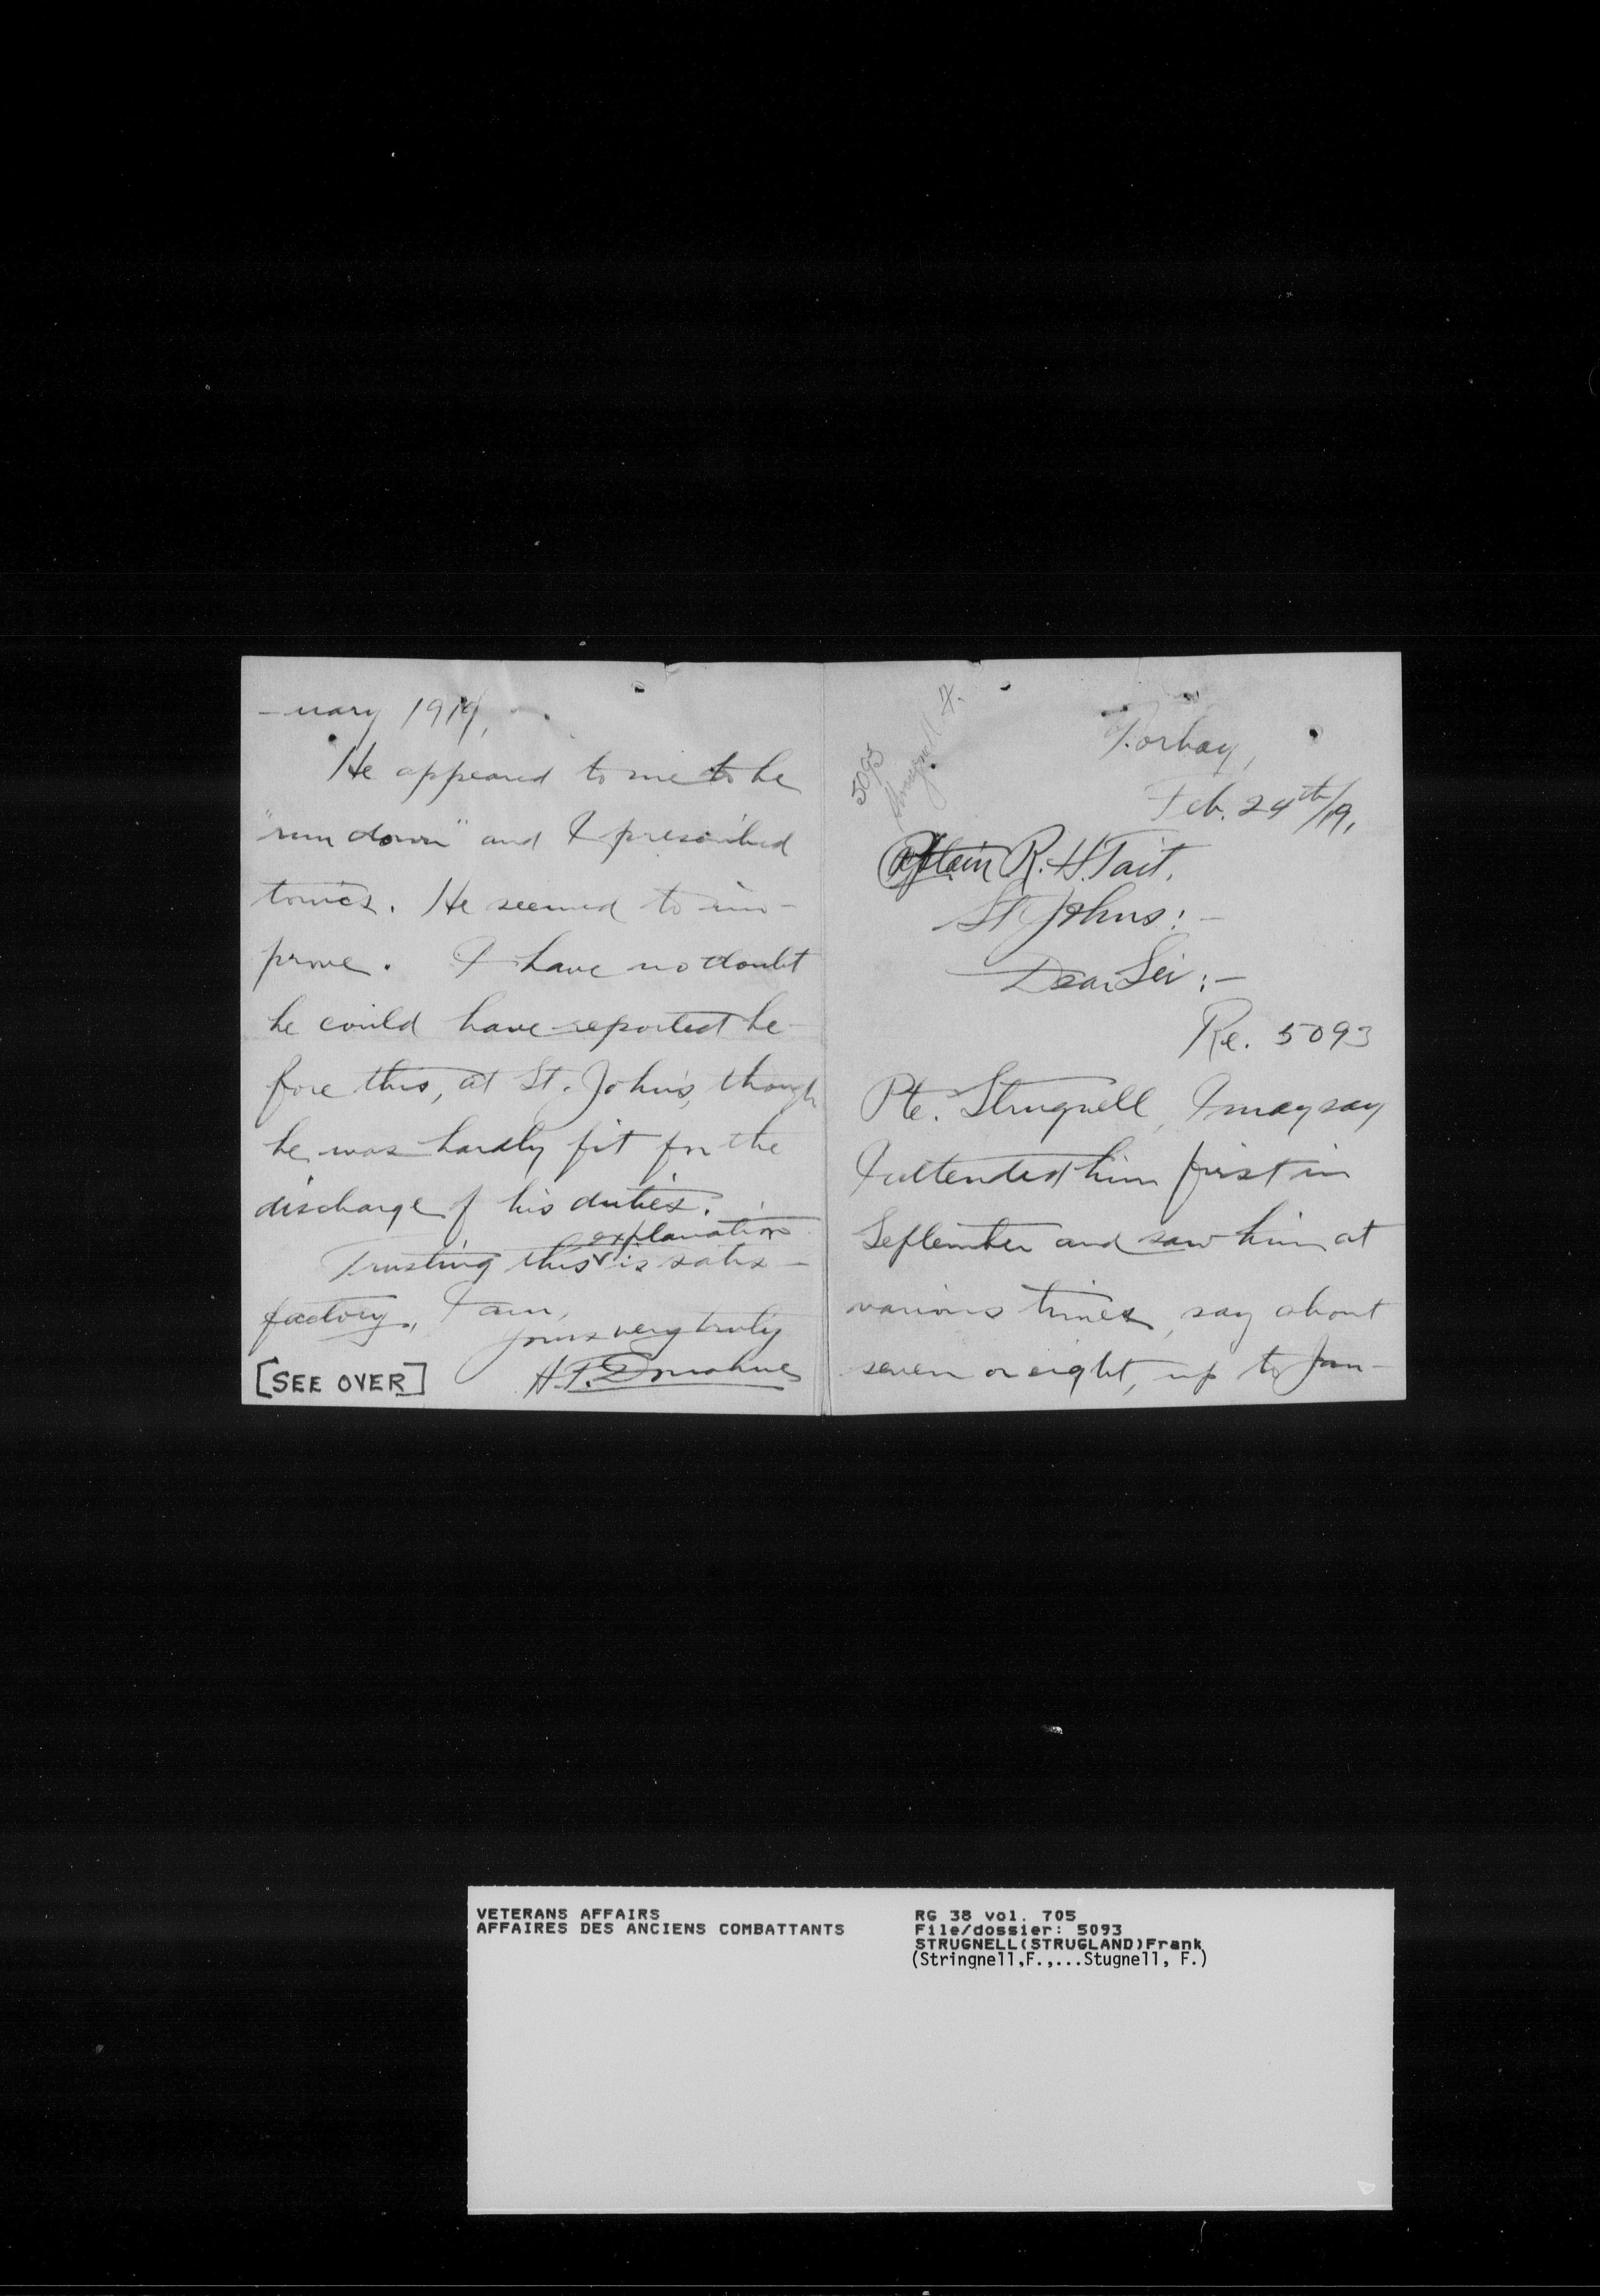 5093
Strugnell F.
Torbay,
Feb. 24th/19,
Captain R. H. Tait,
St Johns:-
Dear Sir:-
Re. 5093
Pte. Strugnell, I may say
I attended him first in
September and saw him at
various times, say about
seven or eight, up to Jan-
-uary 1919,
He appeared to me to be
"run down" and I prescribed
tonics. He seemed to im-
prove. I have no doubt
he could have reported be-
fore this, at St. John's, though
he was hardly fit for the
discharge of his duties.
explanation
Trusting this is satis-
factory, I am,
yours very truly
[SEE OVER]
VETERANS AFFAIRS
AFFAIRES DES ANCIENS COMBATTANTS
RG 38 vol. 705
File/dossier: 5093
STRUGNELL(STRUGLAND)Frank
(Stringnell,F.,...Stugnell, F.)